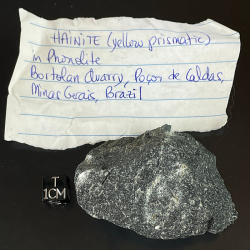 HAINITE (yellow prismatic)
in Phonolite
Bortolan Quarry, Poços de Caldas,
Minas Gerais, Brazil
T
1CM